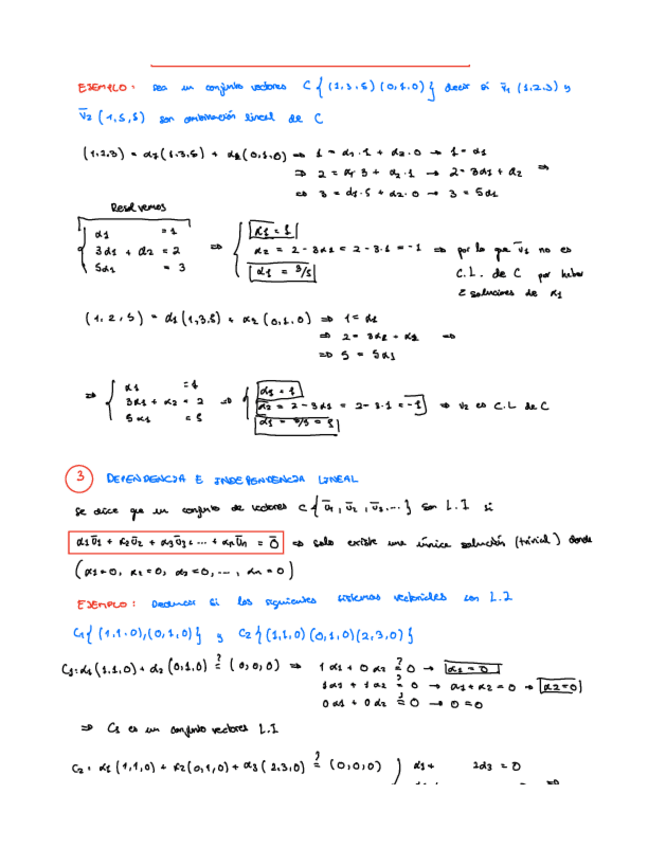 EJEMPLO: Sea un conjunto vectores C { (1,3,5) (0,1,0) } decir si v̄1 (1,2,3) y
v̄2 (1,5,5) son combinación lineal de C
(1,2,3) = α1(1,3,5) + α2(0,1,0) ⇒ 1 = α1·1 + α2·0 → 1 = α1
⇒ 2 = α1·3 + α2·1 → 2 = 3α1 + α2 ⇒
⇒ 3 = α1·5 + α2·0 → 3 = 5α1
Resolvemos
{ α1 = 1
3α1 + α2 = 2
5α1 = 3
⇒ { α1 = 1
α2 = 2 - 3α1 = 2 - 3·1 = -1 ⇒ por lo que v̄1 no es
α1 = 3/5
C.L. de C por haber
2 soluciones de α1
(1,2,5) = α1(1,3,5) + α2(0,1,0) ⇒ 1 = α1
⇒ 2 = 3α2 + α2 ⇒
⇒ 5 = 5α1
⇒ { α1 = 1
3α1 + α2 = 2
5α1 = 5
⇒ { α1 = 1
α2 = 2 - 3α1 = 2 - 3·1 = -1 ⇒ v2 es C.L de C
α1 = 5/5 = 1
3 DEPENDENCIA E INDEPENDENCIA LINEAL
Se dice que un conjunto de vectores C { v̄1, v̄2, v̄3... } son L.I si
α1v̄1 + α2v̄2 + α3v̄3 + ... + αnv̄n = 0̄ ⇒ solo existe una única solución (trivial) donde
(α1=0, α2=0, α3=0, ..., αn=0)
EJEMPLO: Deducir si los siguientes sistemas vectoriales son L.I
C1{ (1,1,0),(0,1,0) } y C2{ (1,1,0) (0,1,0) (2,3,0) }
C1: α1(1,1,0) + α2(0,1,0) ?= (0,0,0) ⇒ 1α1 + 0α2 ?= 0 → α1 = 0
1α1 + 1α2 ?= 0 → α1+α2 = 0 → α2=0
0α1 + 0α2 ?= 0 → 0=0
⇒ C1 es un conjunto vectores L.I
C2: α1(1,1,0) + α2(0,1,0) + α3(2,3,0) ?= (0,0,0) } α1 + 2α3 = 0